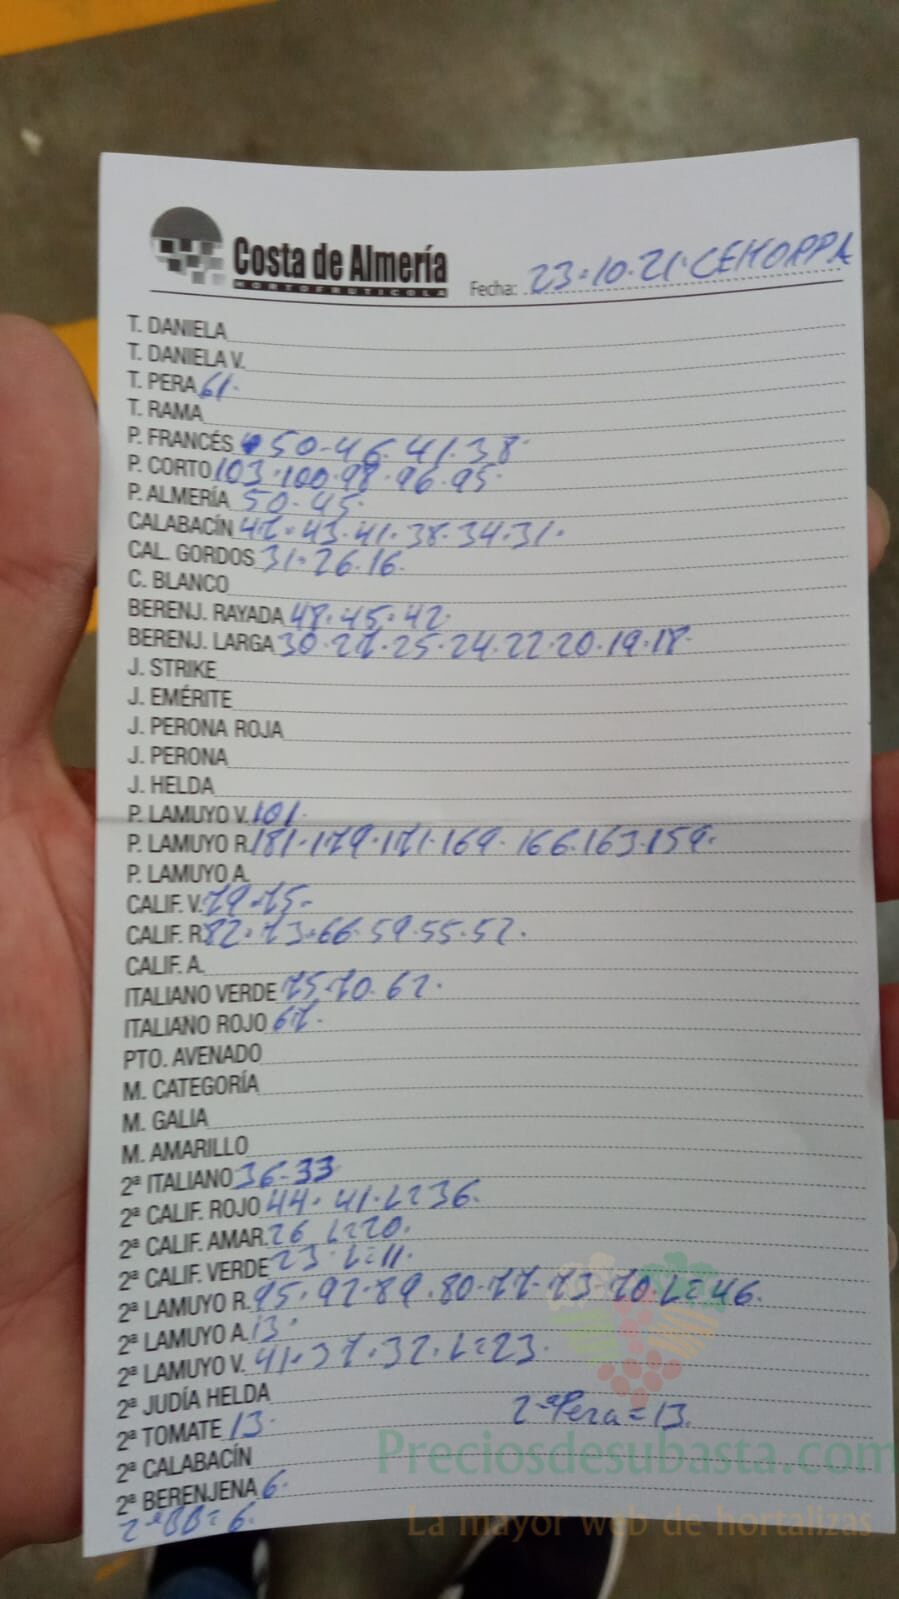 Costa de Almería
HORTOFRUTICOLA
Fecha: 23-10-21. CEHORPA
T. DANIELA
T. DANIELA V.
T. PERA 61.
T. RAMA
P. FRANCÉS 50-46.41.38
P. CORTO 103.100.98.96.95
P. ALMERÍA 50-45.
CALABACÍN 47.43.41.38.34.31.
CAL. GORDOS 31.26.16.
C. BLANCO
BERENJ. RAYADA 48.45.42.
BERENJ. LARGA 30.27.25.24.22.20.19.18
J. STRIKE
J. EMÉRITE
J. PERONA ROJA
J. PERONA
J. HELDA
P. LAMUYO V. 101.
P. LAMUYO R. 181.179.171.169.166.163.159.
P. LAMUYO A.
CALIF. V. 79.75-
CALIF. R. 82.73.66.59.55.52.
CALIF. A.
ITALIANO VERDE 75.70.62.
ITALIANO ROJO 67.
PTO. AVENADO
M. CATEGORÍA
M. GALIA
M. AMARILLO
2ª ITALIANO 36-33
2ª CALIF. ROJO 44.41.L=36.
2ª CALIF. AMAR. 26 L=20.
2ª CALIF. VERDE 23 L=11.
2ª LAMUYO R. 95.92.89.80.77.73.70.L=46.
2ª LAMUYO A. 13.
2ª LAMUYO V. 41.37.32.L=23.
2ª JUDÍA HELDA
2ª Pera=13.
2ª TOMATE 13.
2ª CALABACÍN
2ª BERENJENA 6.
2ªBB=6.
Preciosdesubasta.com
La mayor web de hortalizas